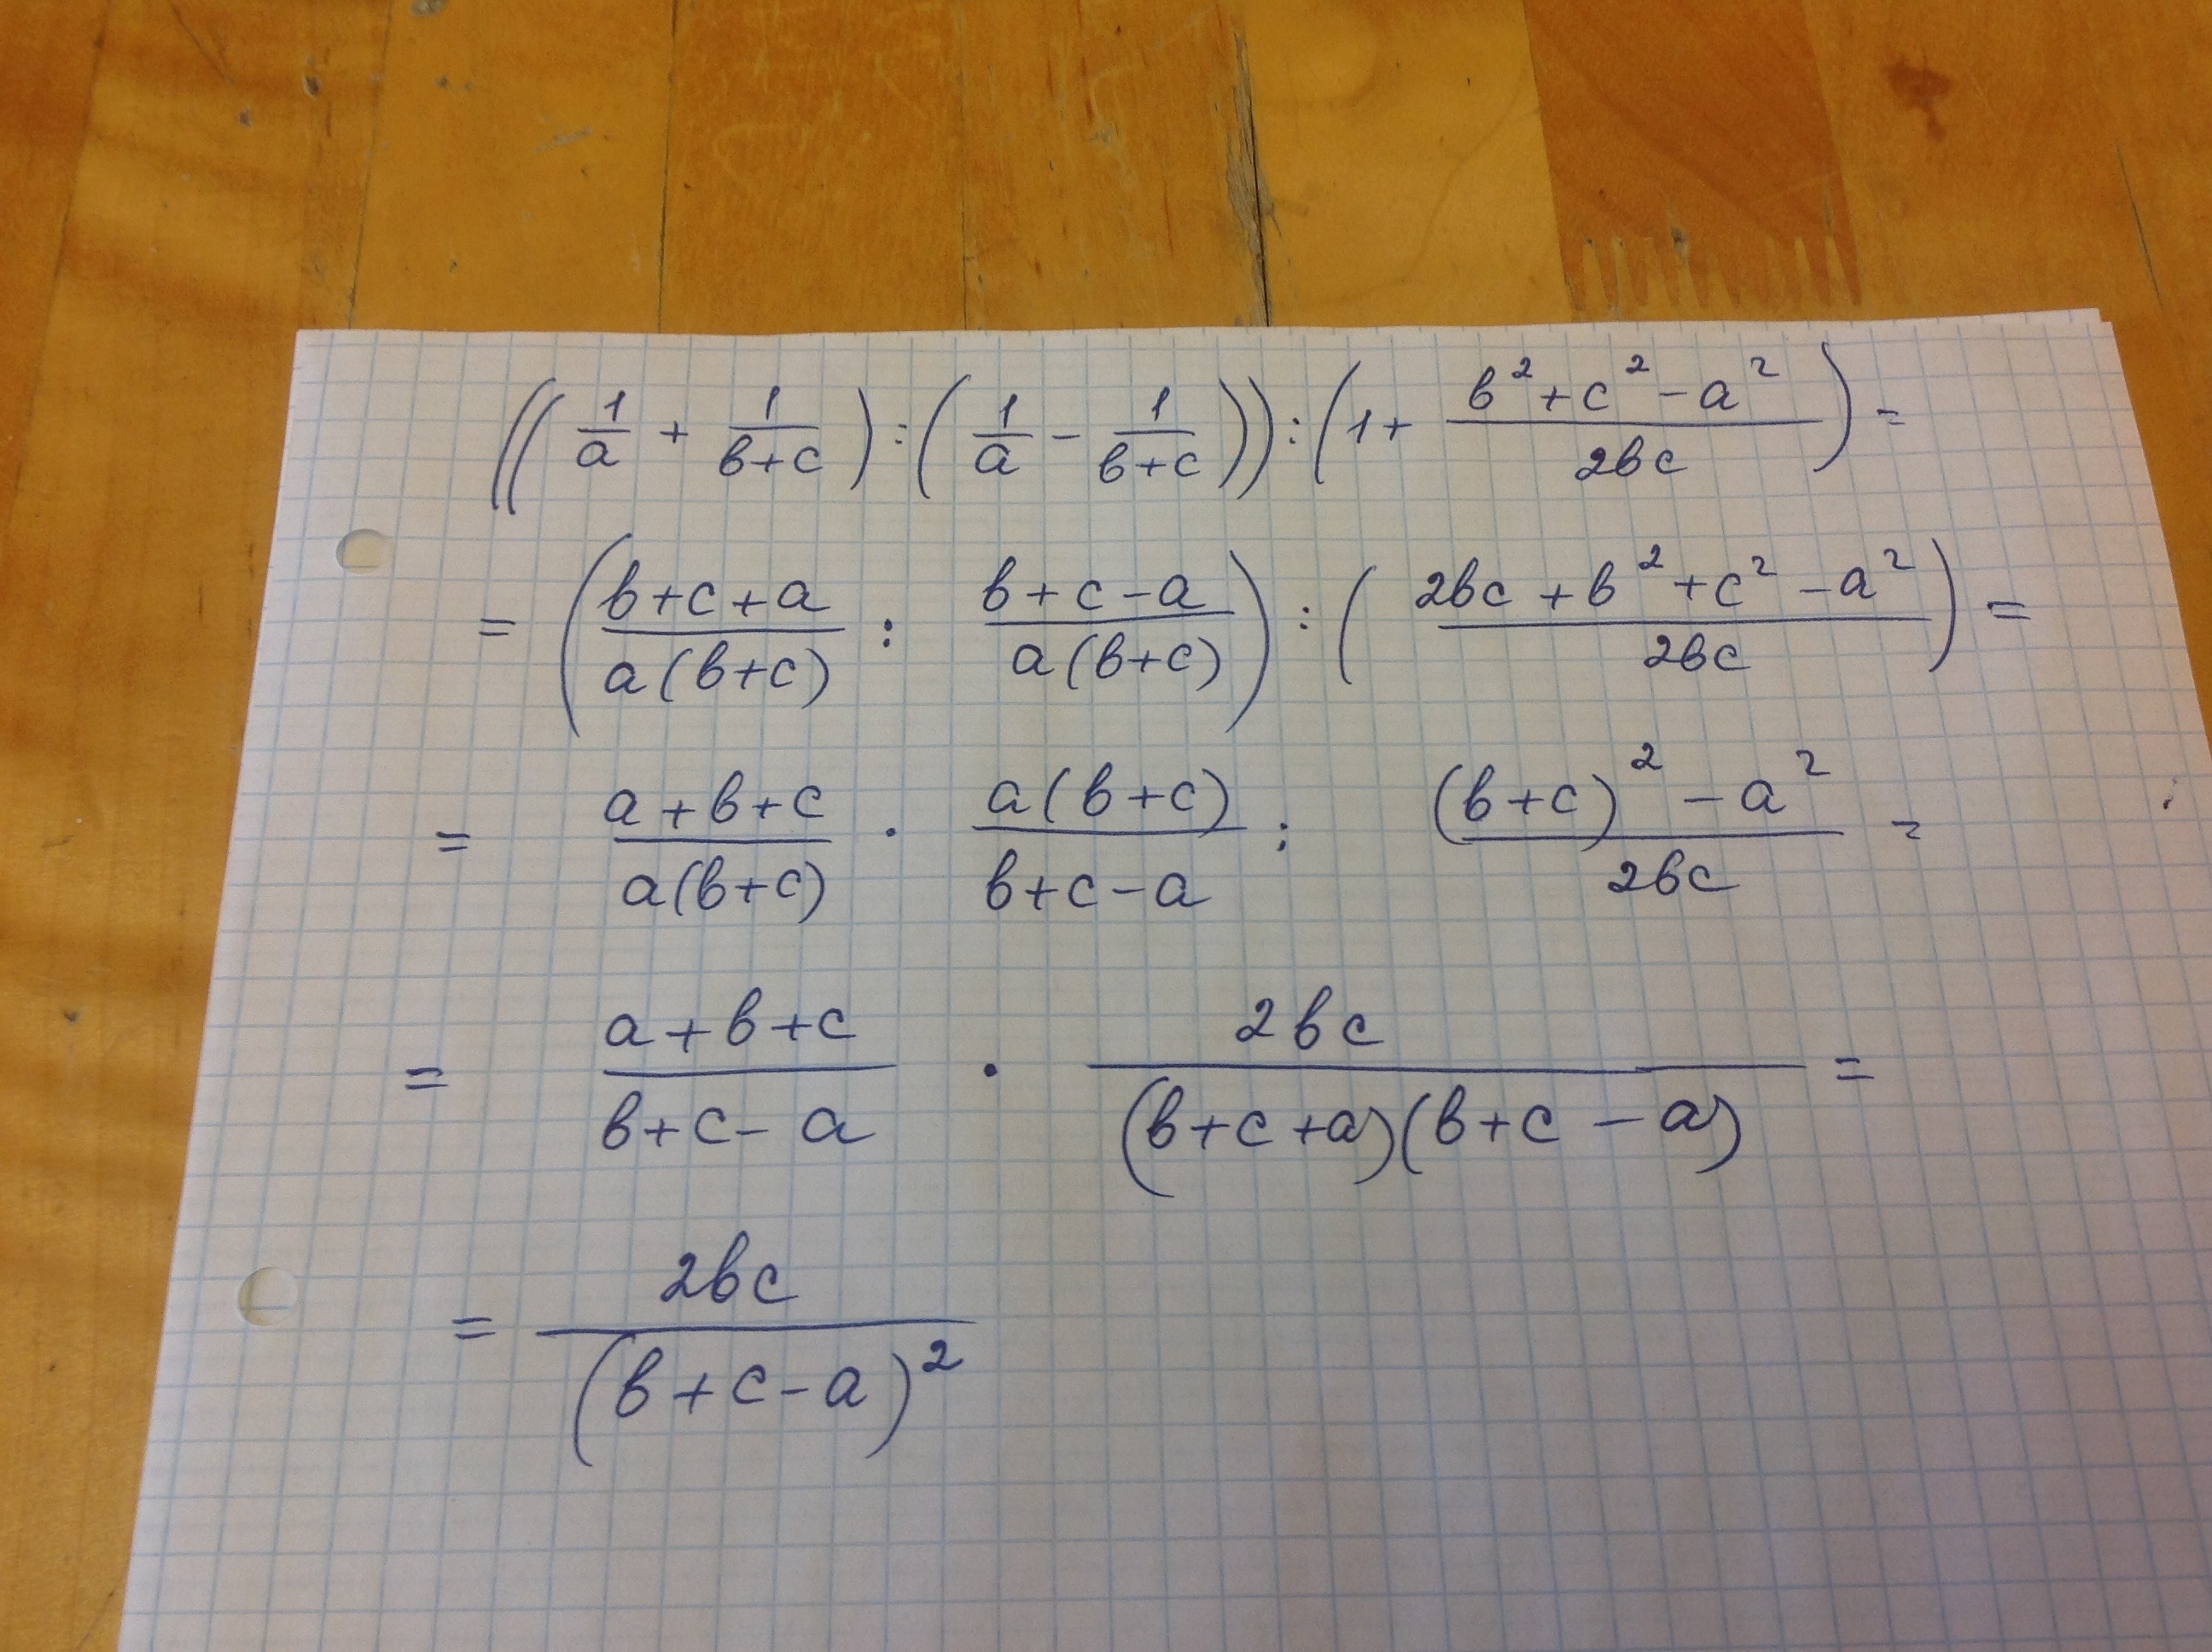 ((1/a + 1/(b+c)) : (1/a - 1/(b+c))) : (1 + (b² + c² - a²)/(2bc)) =
= ((b+c+a)/(a(b+c)) : (b+c-a)/(a(b+c))) : ((2bc + b² + c² - a²)/(2bc)) =
= (a+b+c)/(a(b+c)) · (a(b+c))/(b+c-a) : ((b+c)² - a²)/(2bc) =
= (a+b+c)/(b+c-a) · (2bc)/((b+c+a)(b+c-a)) =
= (2bc)/((b+c-a)²)